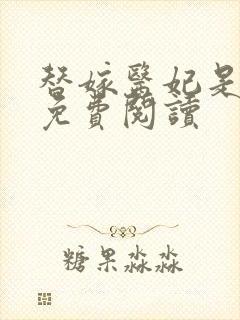 替嫁醫妃是
免費閱讀
糖果淼淼